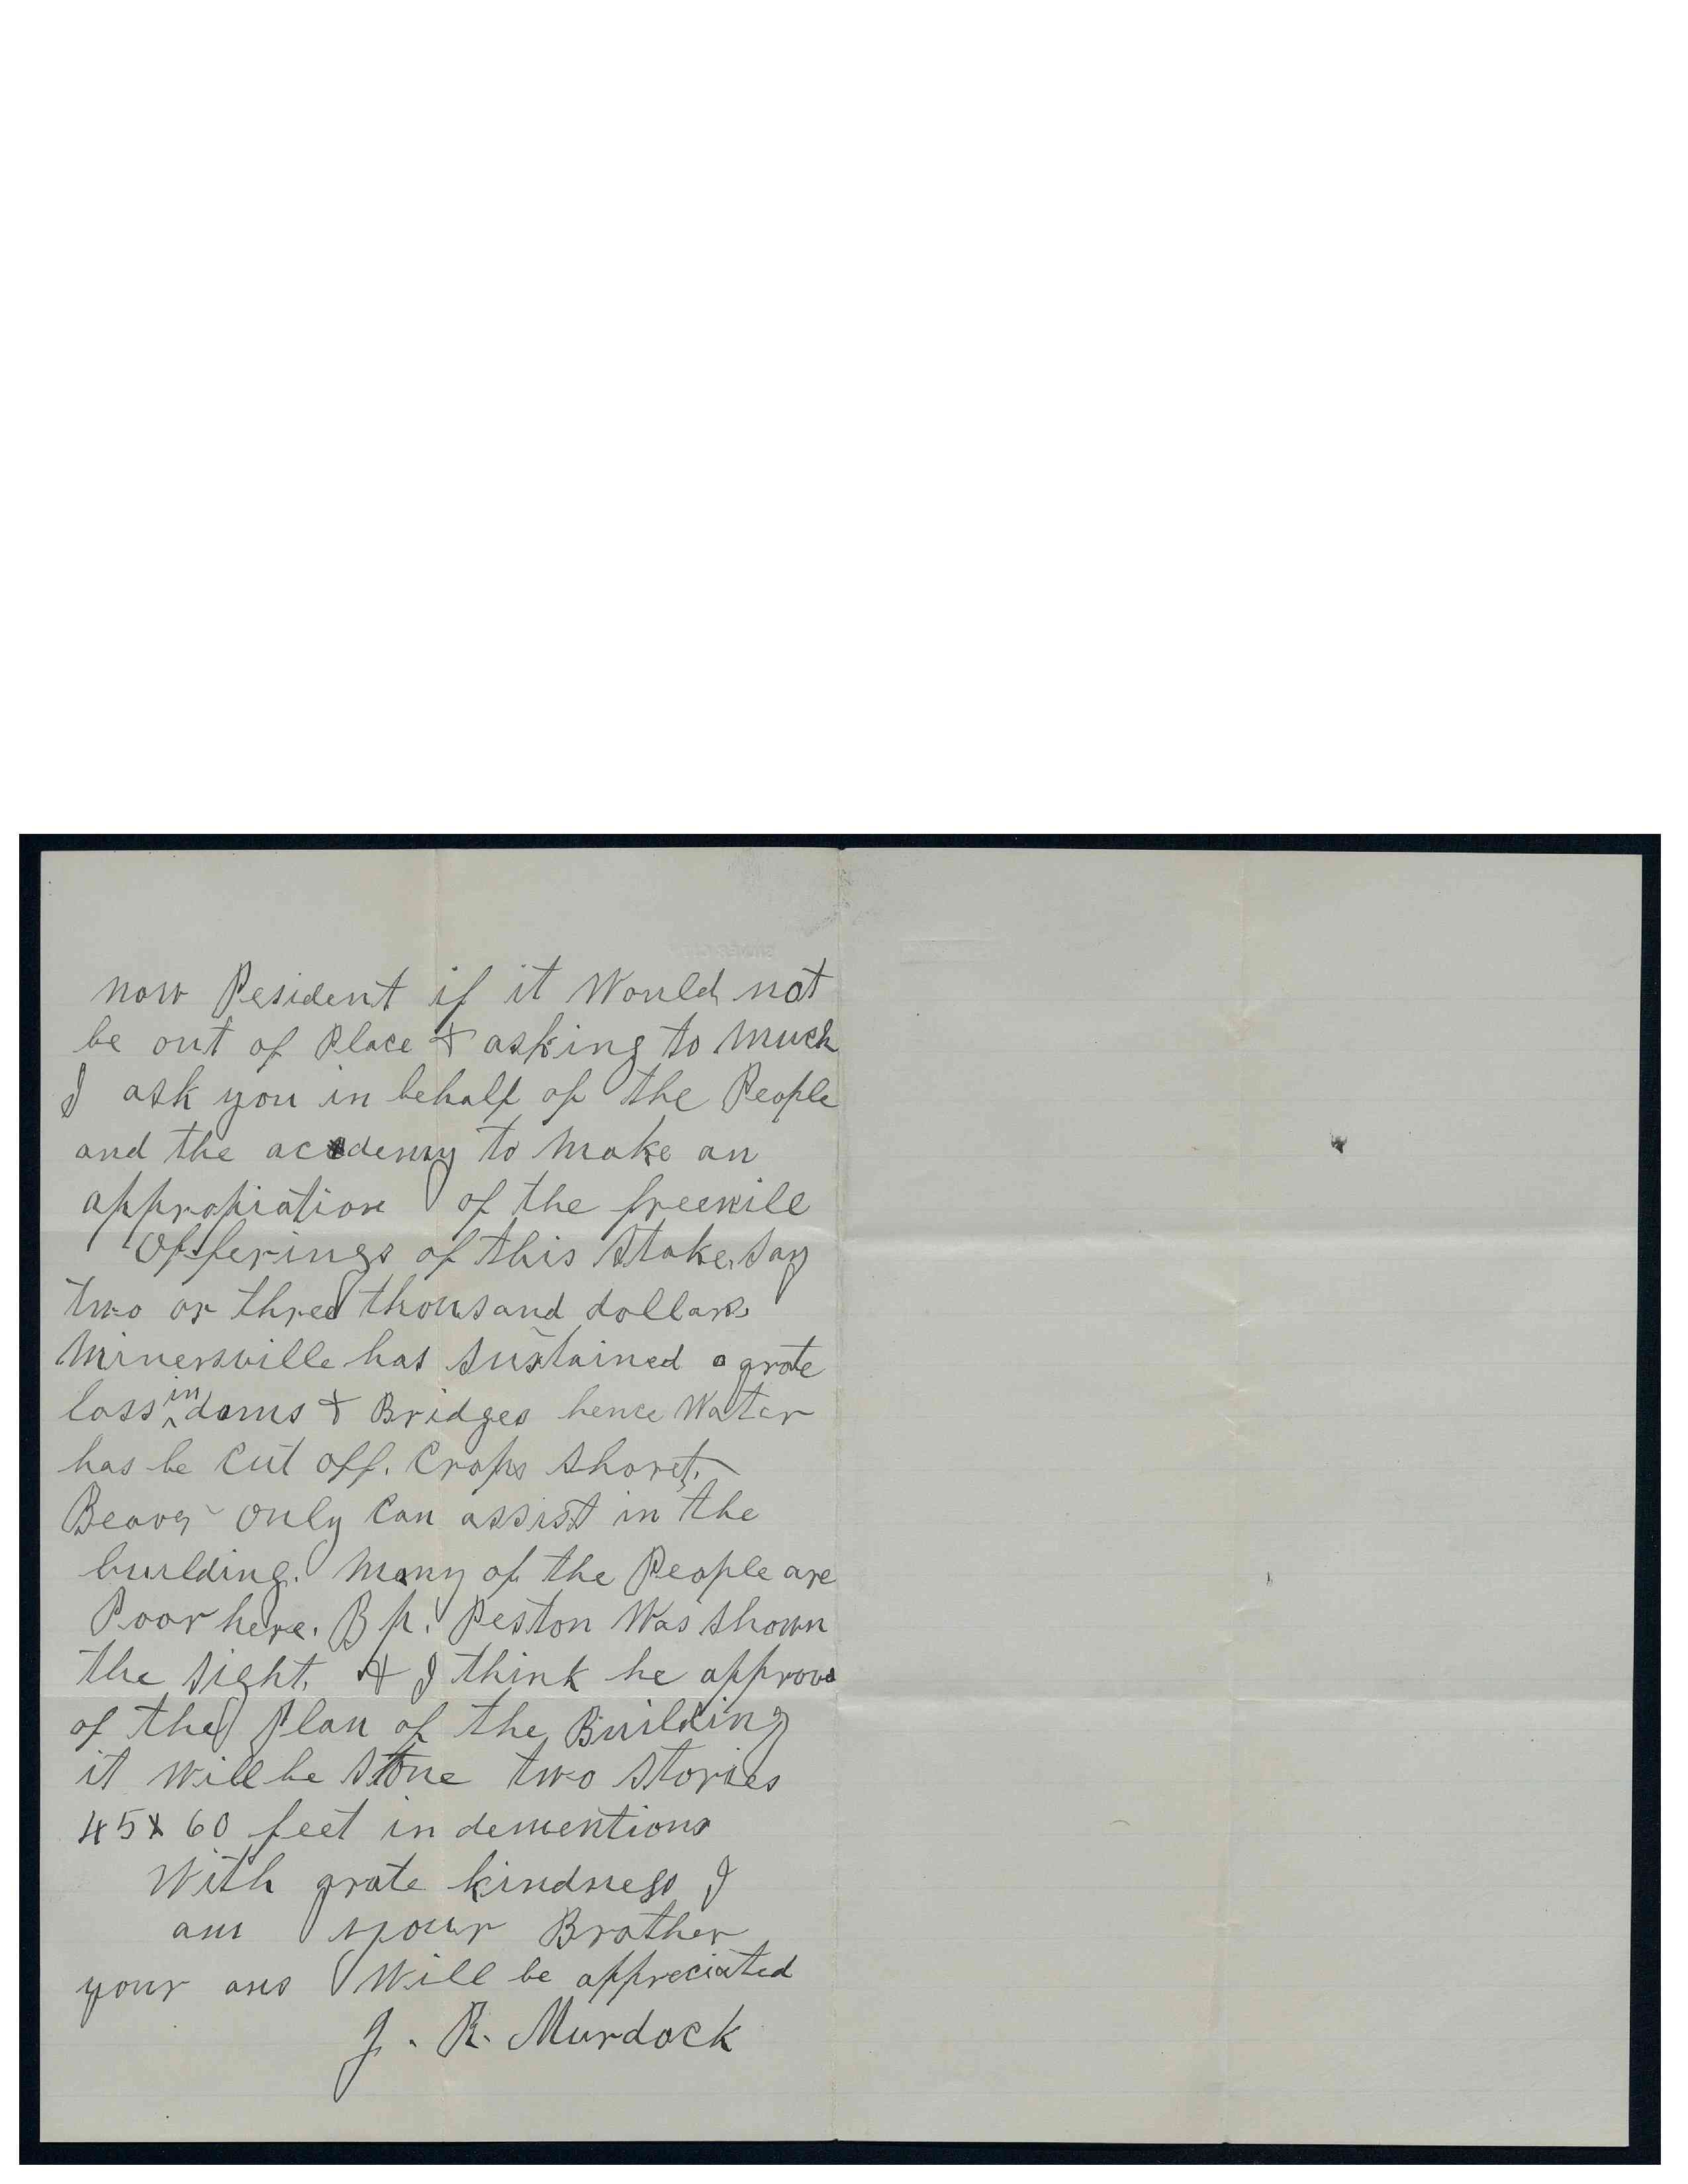 now Pesident if it Would not
be out of Place & asking to Much
I ask you in behalf of the People
and the academy to Make an
appropiation of the freewile
Offerings of this Stake, Say
two or three thousand dollars
Minersville has Sustained a grate
loss in dams & Bridges hence Water
has be Cut off. Crops Shoret.
Beaver Only Can assist in the
building. Many of the People are
Poor here. Bp. Peston Was Shown
the Sight. & I think he approve
of the Plan of the Building
it Will be Stone two Stories
45 x 60 feet in dementions
With grate kindness I
am your Brother
your ans Will be appreciated
J. R. Murdock